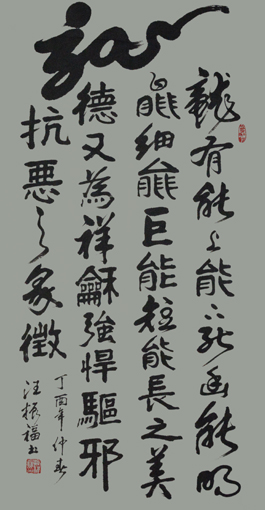 龍有能上能下能幽能明
能細能巨能短能長之美
德又為祥龢強悍驅邪
抗惡之象徵
丁酉年仲春
汪振福書